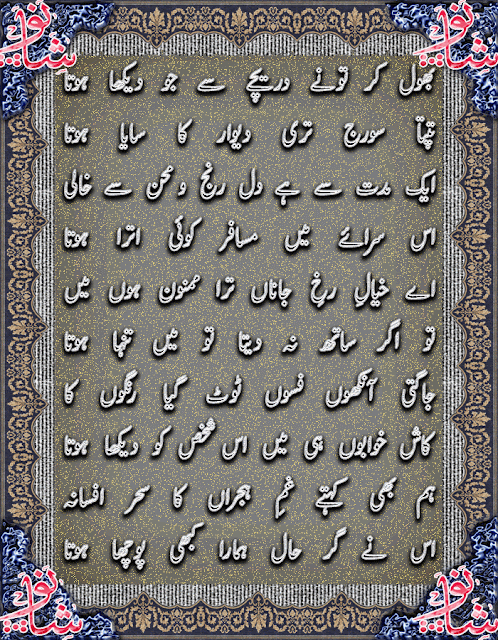 شانو
شانو
بھول کر تونے دریچے سے جو دیکھا ہوتا
تپتا سورج تری دیوار کا سایا ہوتا
ایک مدت سے ہے دل رنج و محن سے خالی
اس سرائے میں مسافر کوئی اترا ہوتا
اے خیالِ رخِ جاناں ترا ممنون ہوں میں
تو اگر ساتھ نہ دیتا تو میں تنہا ہوتا
جاگتی آنکھوں فسوں ٹوٹ گیا رنگوں کا
کاش خوابوں ہی میں اس شخص کو دیکھا ہوتا
ہم بھی کہتے غمِ ہجراں کا سحر افسانہ
اس نے گر حال ہمارا کبھی پوچھا ہوتا
شانو
شانو